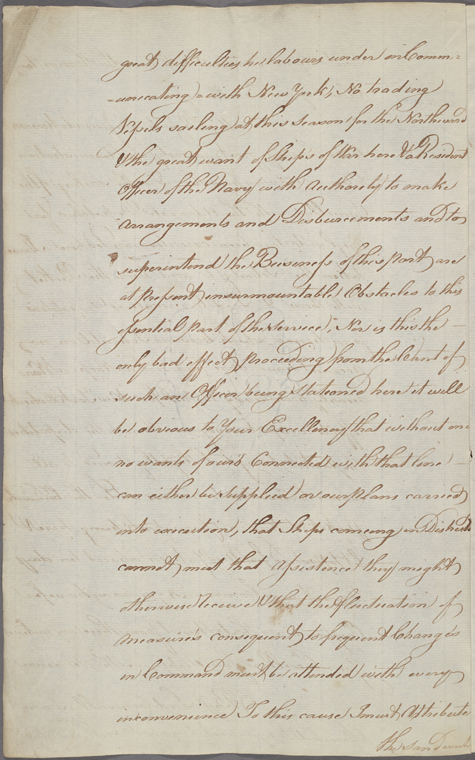 great difficulties he labours under in Comm=
=unicating with New York, No trading
Vessels sailing at this season for the Northward
& the great want of Ships of War here & a Resident
Officer of the Navy with Authority to make
arrangements and Disburcements and to
superintend the Business of this port are
at present insurmountable Obstacles to this
essential part of the service, Nor is this the
only bad effect proceeding from the Want of
such an Officer being stationed here it will
be obvious to Your Excellency that without one
no wants of ours Connected with that line
can either be supplied or our plans carried
into execution, that Ships coming in Distress
cannot meet that assistence they might
otherwise receive & that the fluctuation of
measures consequent to frequent Changes
in Command must be attended with every
inconvenience To this cause I must Attribute
the